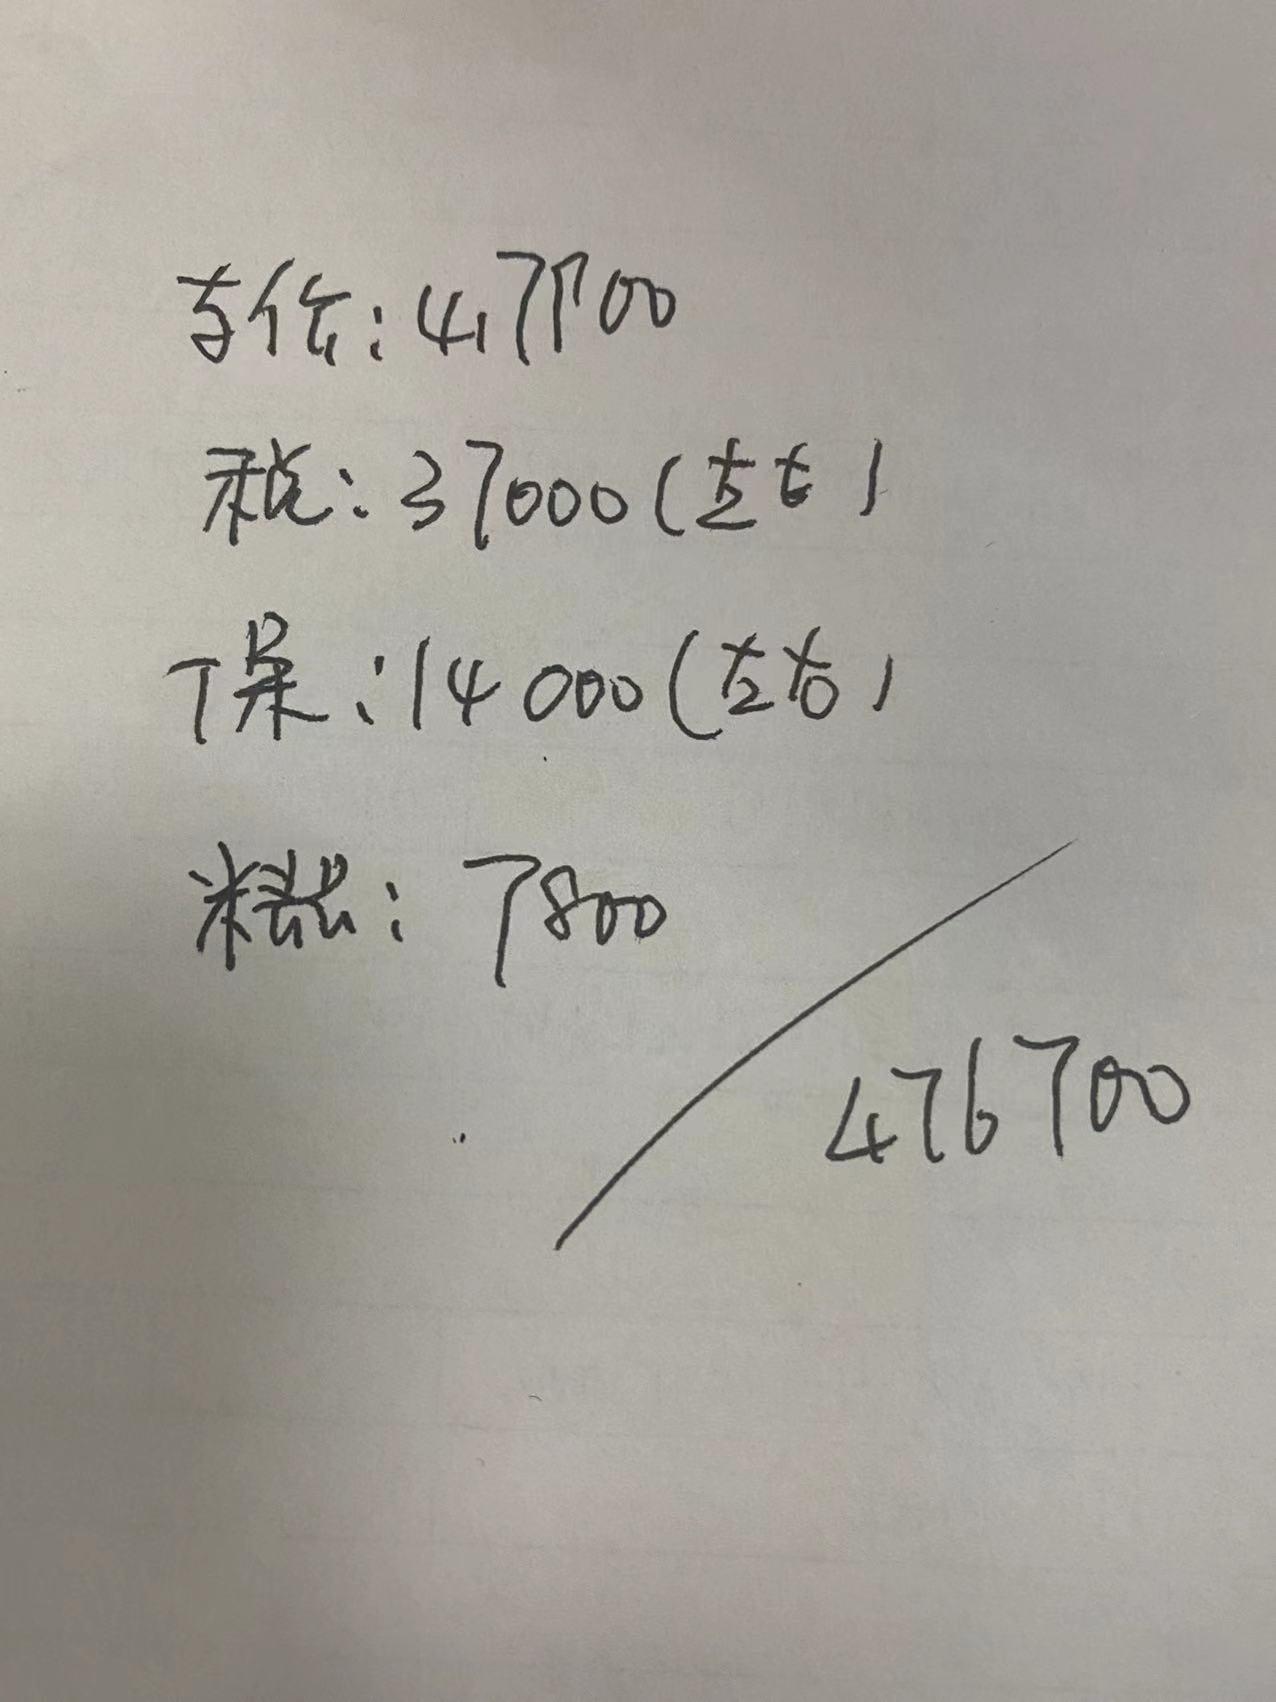 车价:417900
税:37000(左右)
保:14000(左右)
:7800
476700